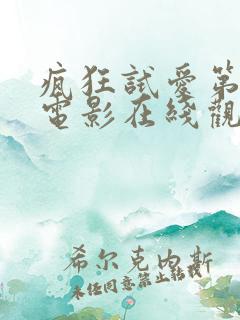 瘋狂試愛第
電影在綫觀
希尔克内斯
未经同意禁止转载